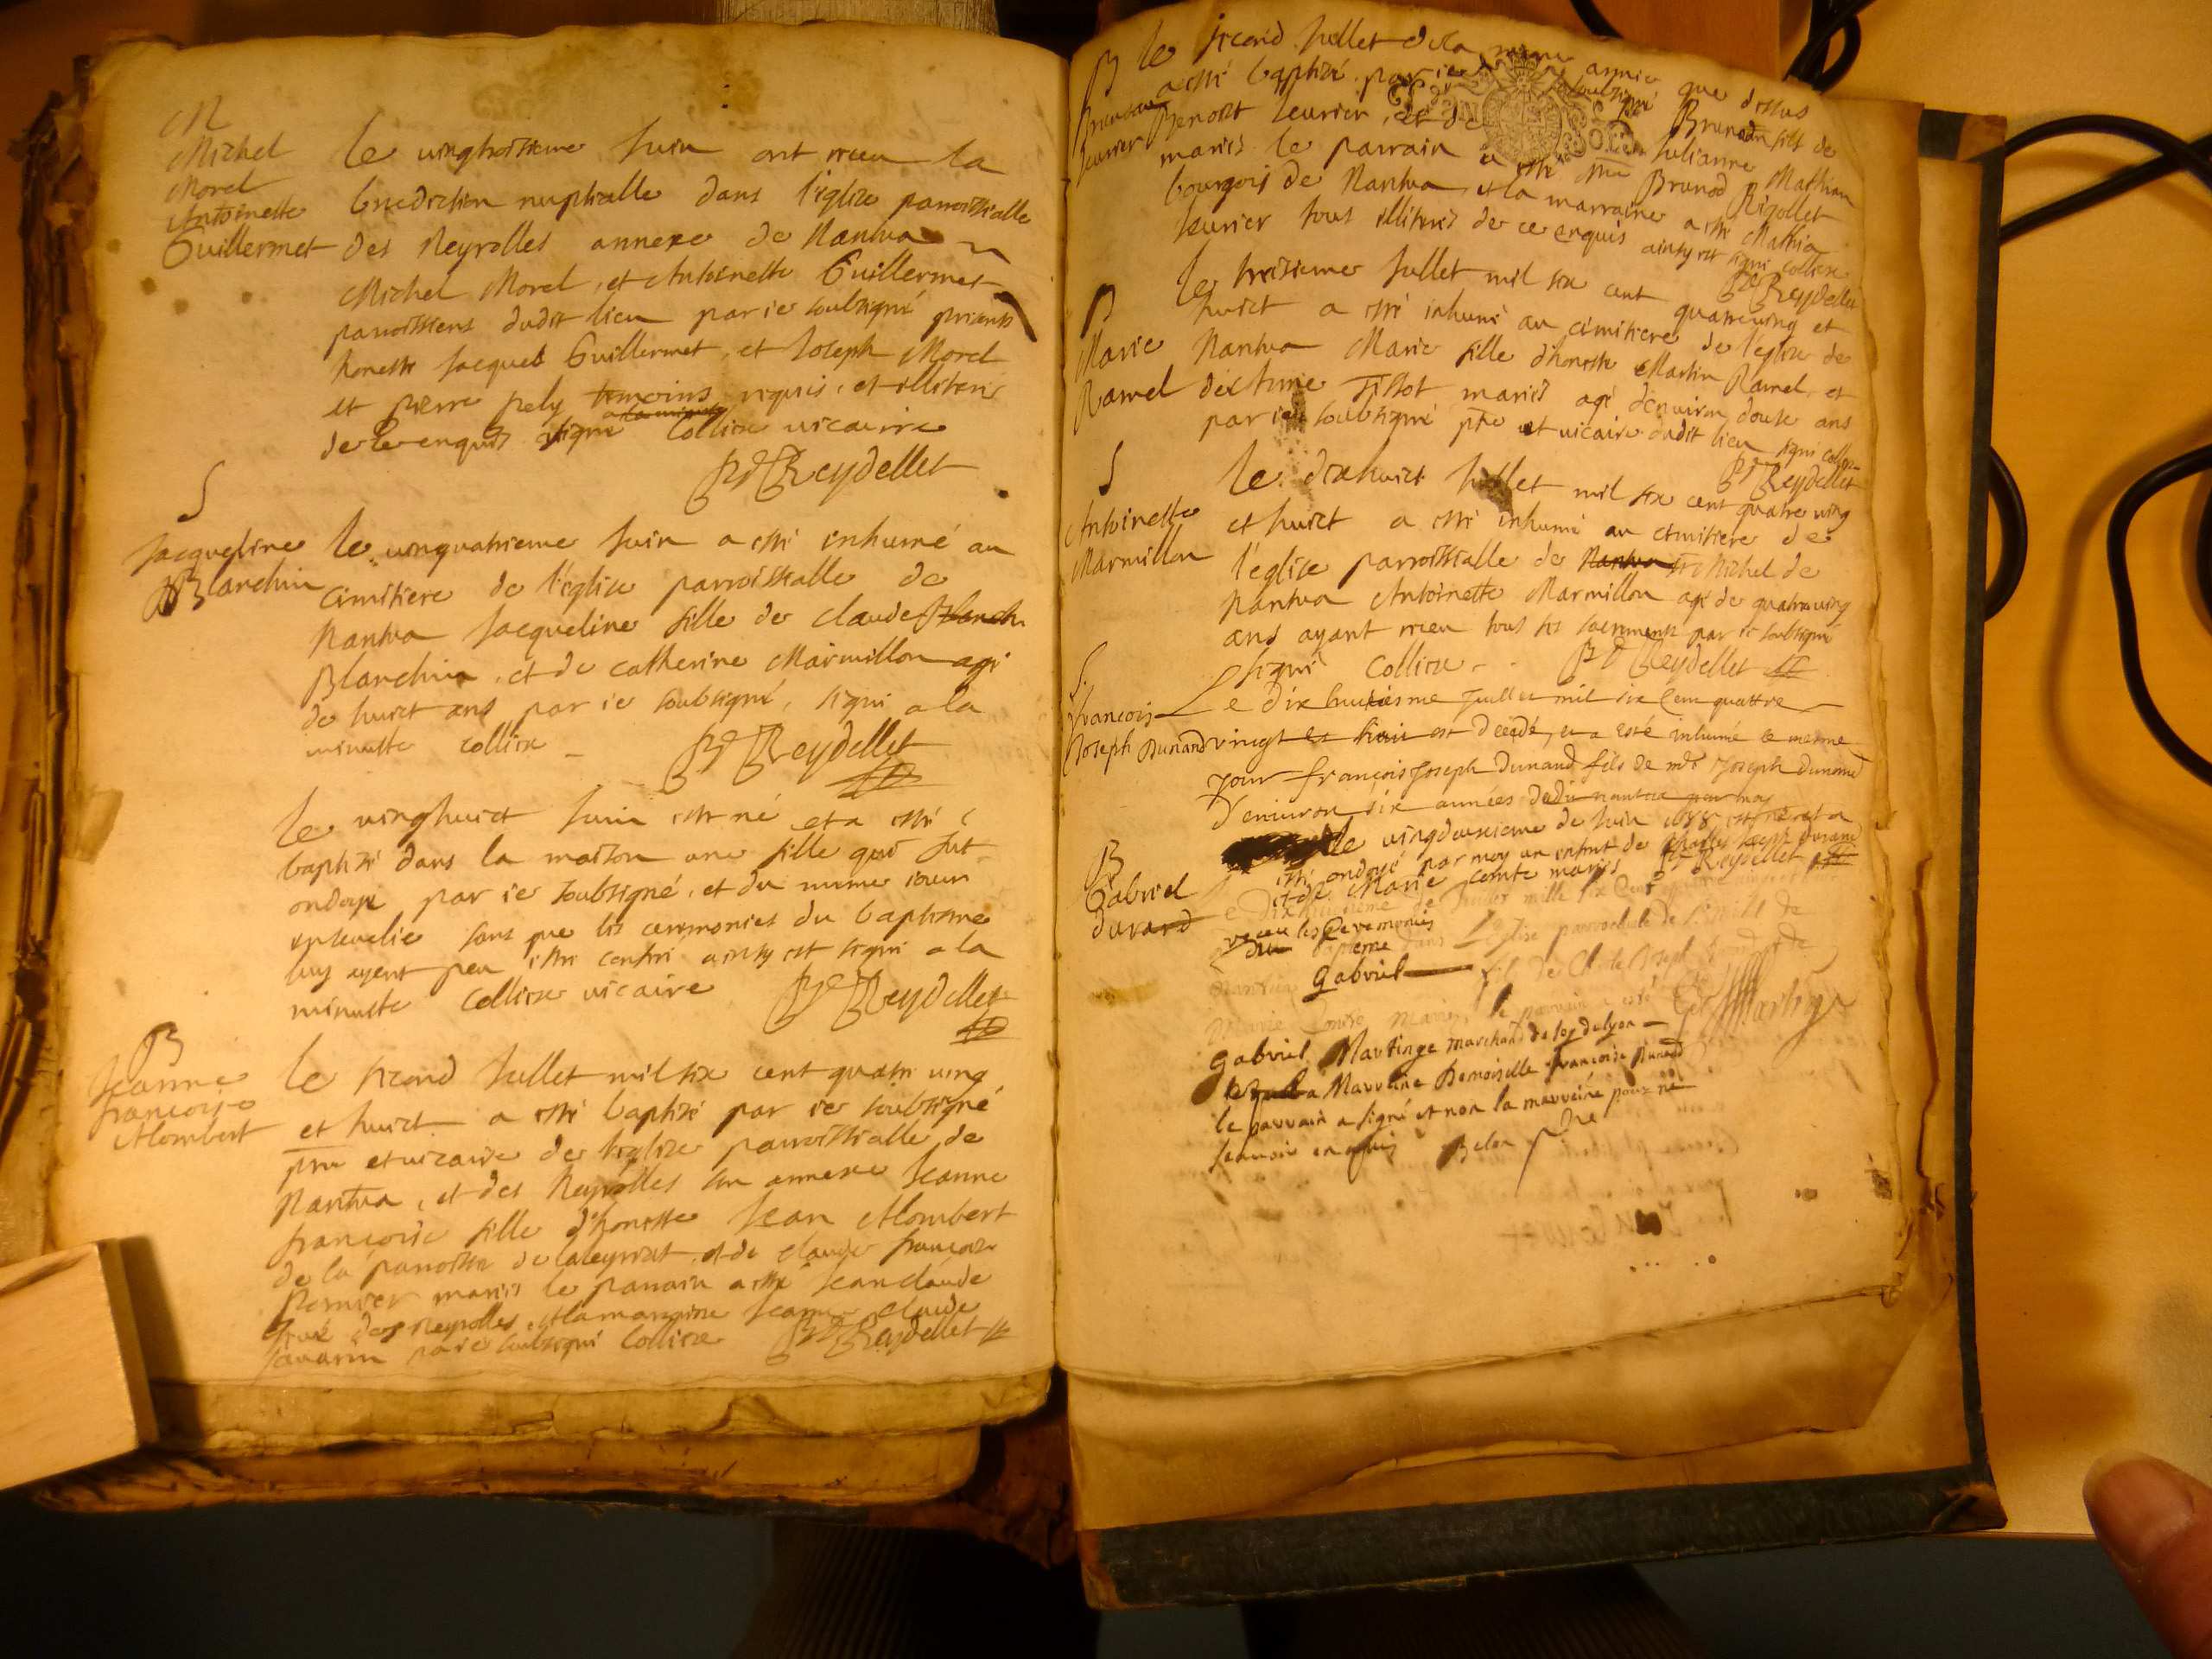 M
Michel
Morel
Antoinette
Guillermet
le vingtroisieme Juin ont receu la
benediction nuptialle dans l'eglize parroissialle
des Neyrolles annexe de Nantua
Michel Morel, et Antoinette Guillermet
parroissiens dudit lieu par ie soubsigné presents
honeste Jacques Guillermet, et Joseph Morel
et pierre pely temoins requis, et illiterés
de ce enquis signé a la minute Collien vicairre
Reydellet
S
Jacqueline
Blanchin
le vinquatrieme Juin a esté inhumé au
cimitiere de l'eglize parroissialle de
Nantua Jacqueline fille de claude Blanch
Blanchin, et de catherine Marmillon agé
de huict ans par ie soubsigné, signé a la
minutte collien
Reydellet
le vinghuict Juin est né et a esté
baptizé dans la maison une fille qui fut
ondoye par ie soubsigné, et du mesme iour
ensevelie sans que les ceremonies du baptesme
luy ayent peu estre conferé ainsy est signé a la
minutte Collien vicaire Reydellet
B
Jeanne
françoise
Alombert
le second Juillet mil six cent quatre ving
et huict a esté baptizé par ie soubsigné
pre et vicaire de l'eglize parroissialle de
Nantua, et des Neyrolles son annexe Jeanne
françoise fille d'honeste Jean Alombert
de la parroisse de laleyriat et de claude françoise
Pernier mariés le parrain a esté Jean claude
des Neyrolles, et la marraine Jeanne claude
Savarin par ie soubsigné Collien Reydellet
B
Brunod
Jeurier
le second Juillet de la mesme annie que dessus
a esté baptizé par ie soubsigné Brunod fils de
Benoist Jeurier, et de Julianne Mathian
mariés le parrain a esté Brunod Rigollet
bourgois de Nantua et la marraine a esté Mathia
Jeurier tous illiterés de ce enquis ainsy est signé Collien
Reydellet
Marie
Ramel
le treizieme Jullet mil six cent quatreving et
huict a esté inhumé au cimitiere de l'eglize de
Nantua Marie fille d'honeste Martin Ramel, et
Tissot mariés agé denviron douse ans
par ie soubsigné pre et vicaire dudit lieu signé collien
Reydellet
S
Antoinette
Marmillon
le dixhuict Jullet mil six cent quatre ving
et huict a esté inhumé au cimitiere de
l'eglize parroissialle de Nantua St Michel de
Nantua Antoinette Marmillon agé de quatreving
ans ayant receu tous ses sacrements par ie soubsigné
signé Collien Reydellet
S.
François
Joseph Dunand
Le dix huictiesme Juillet mil six Cent quattre
vingt et huit est décédé, et a esté inhumé le mesme
Jour françois Joseph Dunand fils de mre Joseph Dunand
d'environ six années dudit nantua par moy
B
Gabriel
Dunand
le vingdeuxieme de Juin 1688 est né et a
esté ondoyé par moy un enfant de Charles Joseph Dunand
et de Marie Comte mariés Reydellet
le dixhuictieme de Juillet mille six Cent
receu les Ceremonies
du bapteme dans L'Eglise parroichiale de St Michel de
Nantua Gabriel fils de Charle Joseph Dunand et de
Marie Comte mariés, le parrain a esté
Gabriel Martinge marchand de lyon
la Marraine Demoiselle françoise Dunand
le parrain a signé et non la marreine pour ne
scavoir enquis Belon pre